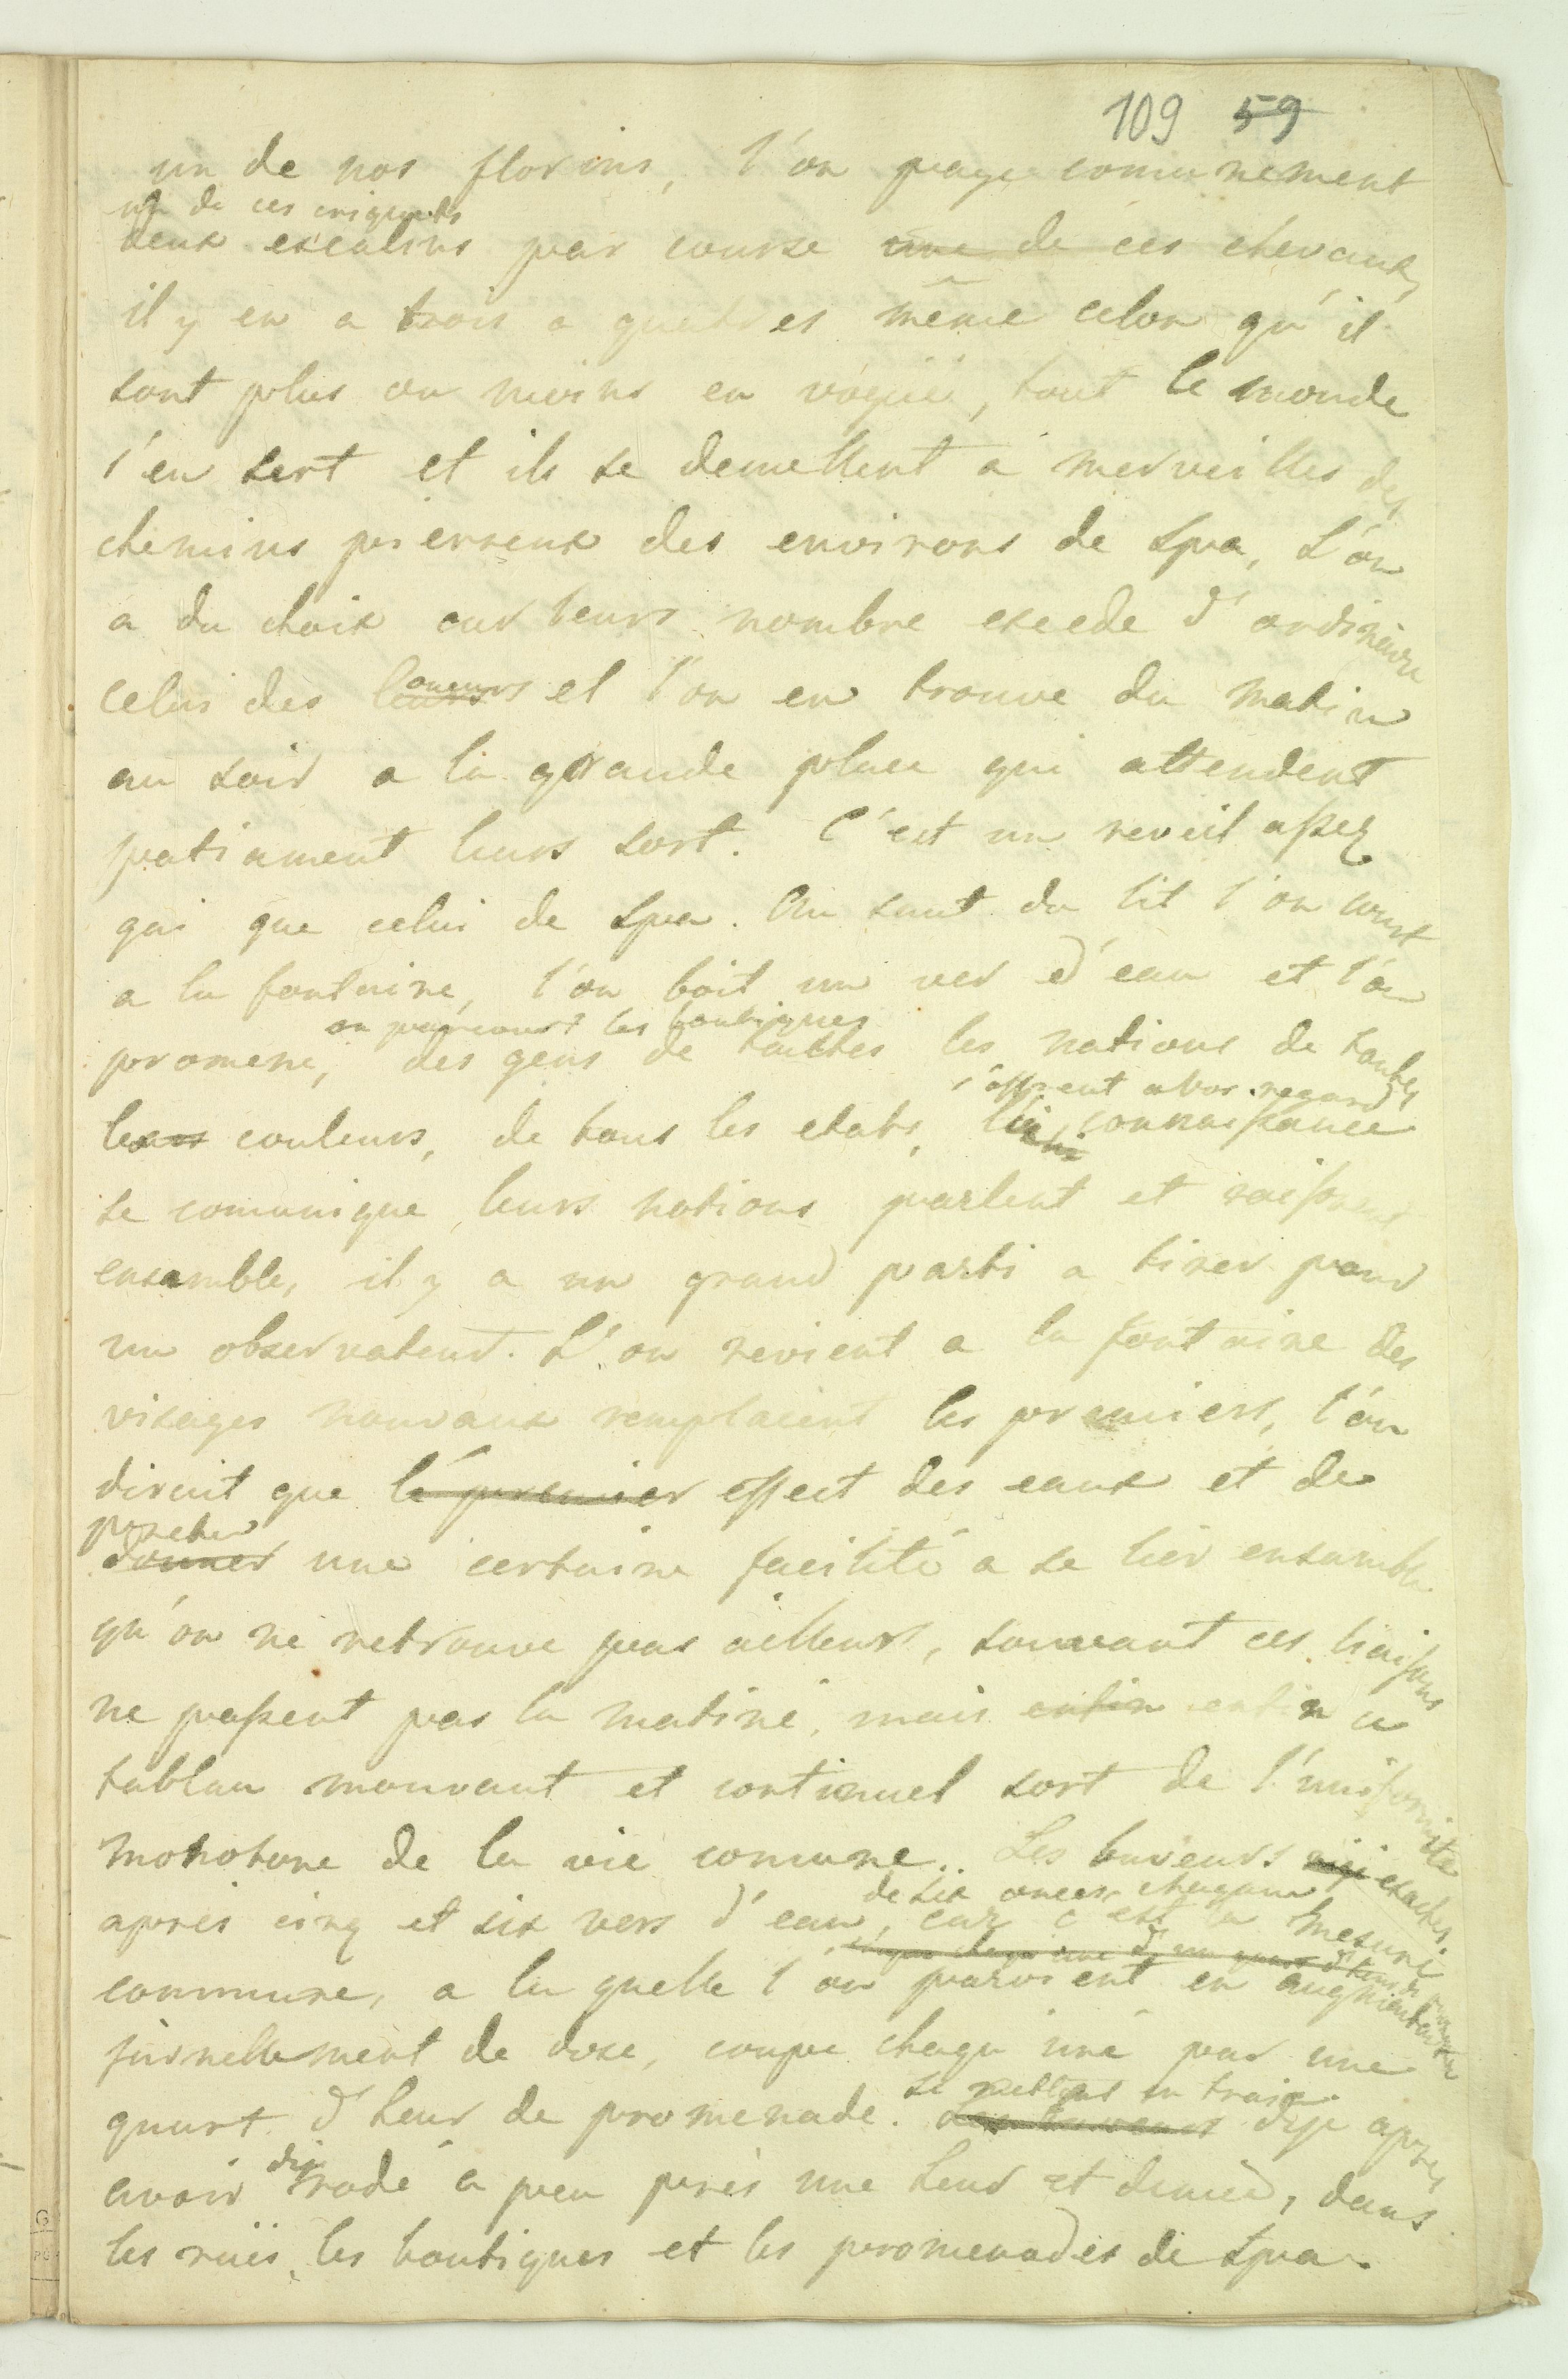 109 59
un de nos florins, l'on paye comunement
un de ces criquets
deux escalins par course une de ces chevaux,
il y en a trois a quatres même celon qu'il
sont plus ou moins en vogüe, tout le monde
s'en sert et ils se demellent a merveilles des
chemins pierreux des environs de Spa, L'on
a du choix car leurs nombre excede d'ordinaire
celui des loueurs et l'on en trouve du matin
au soir a la grande place qui attendent
patiament leurs sort. C'est un reveil assez
gai que celui de Spa. Au saut du lit l'on court
a la fontaine, l'on boit un ver d'eau et l'on
on parcourt les boutiques
promene, des gens de toutes les nations de toutes
s'offrent a vos regards
les couleurs, de tous les etats, la connaissance
se comunique, leurs nations parlent et raisonent
ensamble, il y a un grand parti a tirer pour
un observateur. L'on revient a la fontaine des
visages nouvaux remplacent les premiers, l'on
diroit que le premier effect des eaux et de
preter
donner une certaine facilité a se lier ensamble
qu'on ne retrouve pas ailleurs, souvant ces liaisons
ne passent pas la matiné, mais enfin enfin ce
tablau mouvant et continuel sort de l'uniformité
monotone de la vie comune.. Les buveurs exactes.
de six onces chaqune
apres cinq et six vers d'eau, car c'est la mesure
commune, a la quelle l'on parvient en augmentant
jurnellement de dose, coupé chaqu'une par une
se mettent en train
quart d'heur de promenade. Les buveurs deja apres
avoir dija rodé a peu près une heur et demie, dans
les ruës, les boutiques et les promenades de Spa.